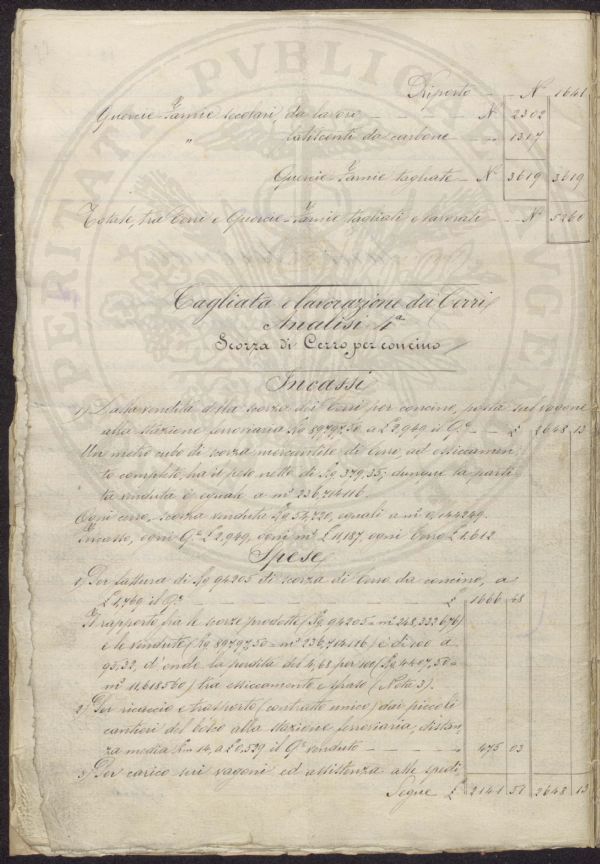 Riporto — — Nº 1641
Quercie-Farnie secolari, da lavoro — — — — Nº 2302
" latiscenti da carbone — — " 1317
Quercie-Farnie tagliate — Nº 3619 3619
Totale, tra Cerri e Quercie-Farnie tagliati e lavorati — — Nº 5260
Tagliata e lavorazione dei Cerri
Analisi 1ª
Scorza di Cerro per concino
Incassi
1) Dalla vendita della scorza dei Cerri per concino, posta sul vagone
alla stazione ferroviaria Kg 89797,50 a £ 2,949 il Q.le — £ 2648 13
Un metro cubo di scorza mercantile di Cerro, ad essiccamen-
to completo, ha il peso netto di Kg 379,35; dunque la parti-
ta venduta è eguale a m³ 236,714116.
Ogni cerro, scorza venduta Kg 54,720, eguali a m³ 0,144249.
Incasso, ogni Q.le £ 2,949, ogni m³ £ 11,187, ogni Cerro £ 1,612
Spese
1) Per fattura di Kg 94205 di scorza di Cerro da concino, a
£ 1,769 il Q.le — — — — £ 1666 48
Il rapporto fra le scorze prodotte (Kg 94205 = m³ 248,332676)
e le vendute (Kg 89797,50 = m³ 236,714116) è di 100 a
95,32, d'onde la perdita del 4,68 per 100 (Kg 4407,50 =
m³ 11,618560) tra essiccamento e sfrato (Nota 3).
2) Per ricaccio e trasporto (contratto unico) dai piccoli
cantieri del bosco alla stazione ferroviaria, distan-
za media Km 14, a £ 0,529 il Q.le venduto — — — — " 475 03
3) Per carico sui vagoni ed assistenza alle spedi-
Segue £ 2141 51 2648 13
PERITATI PVBLICAE AVGE